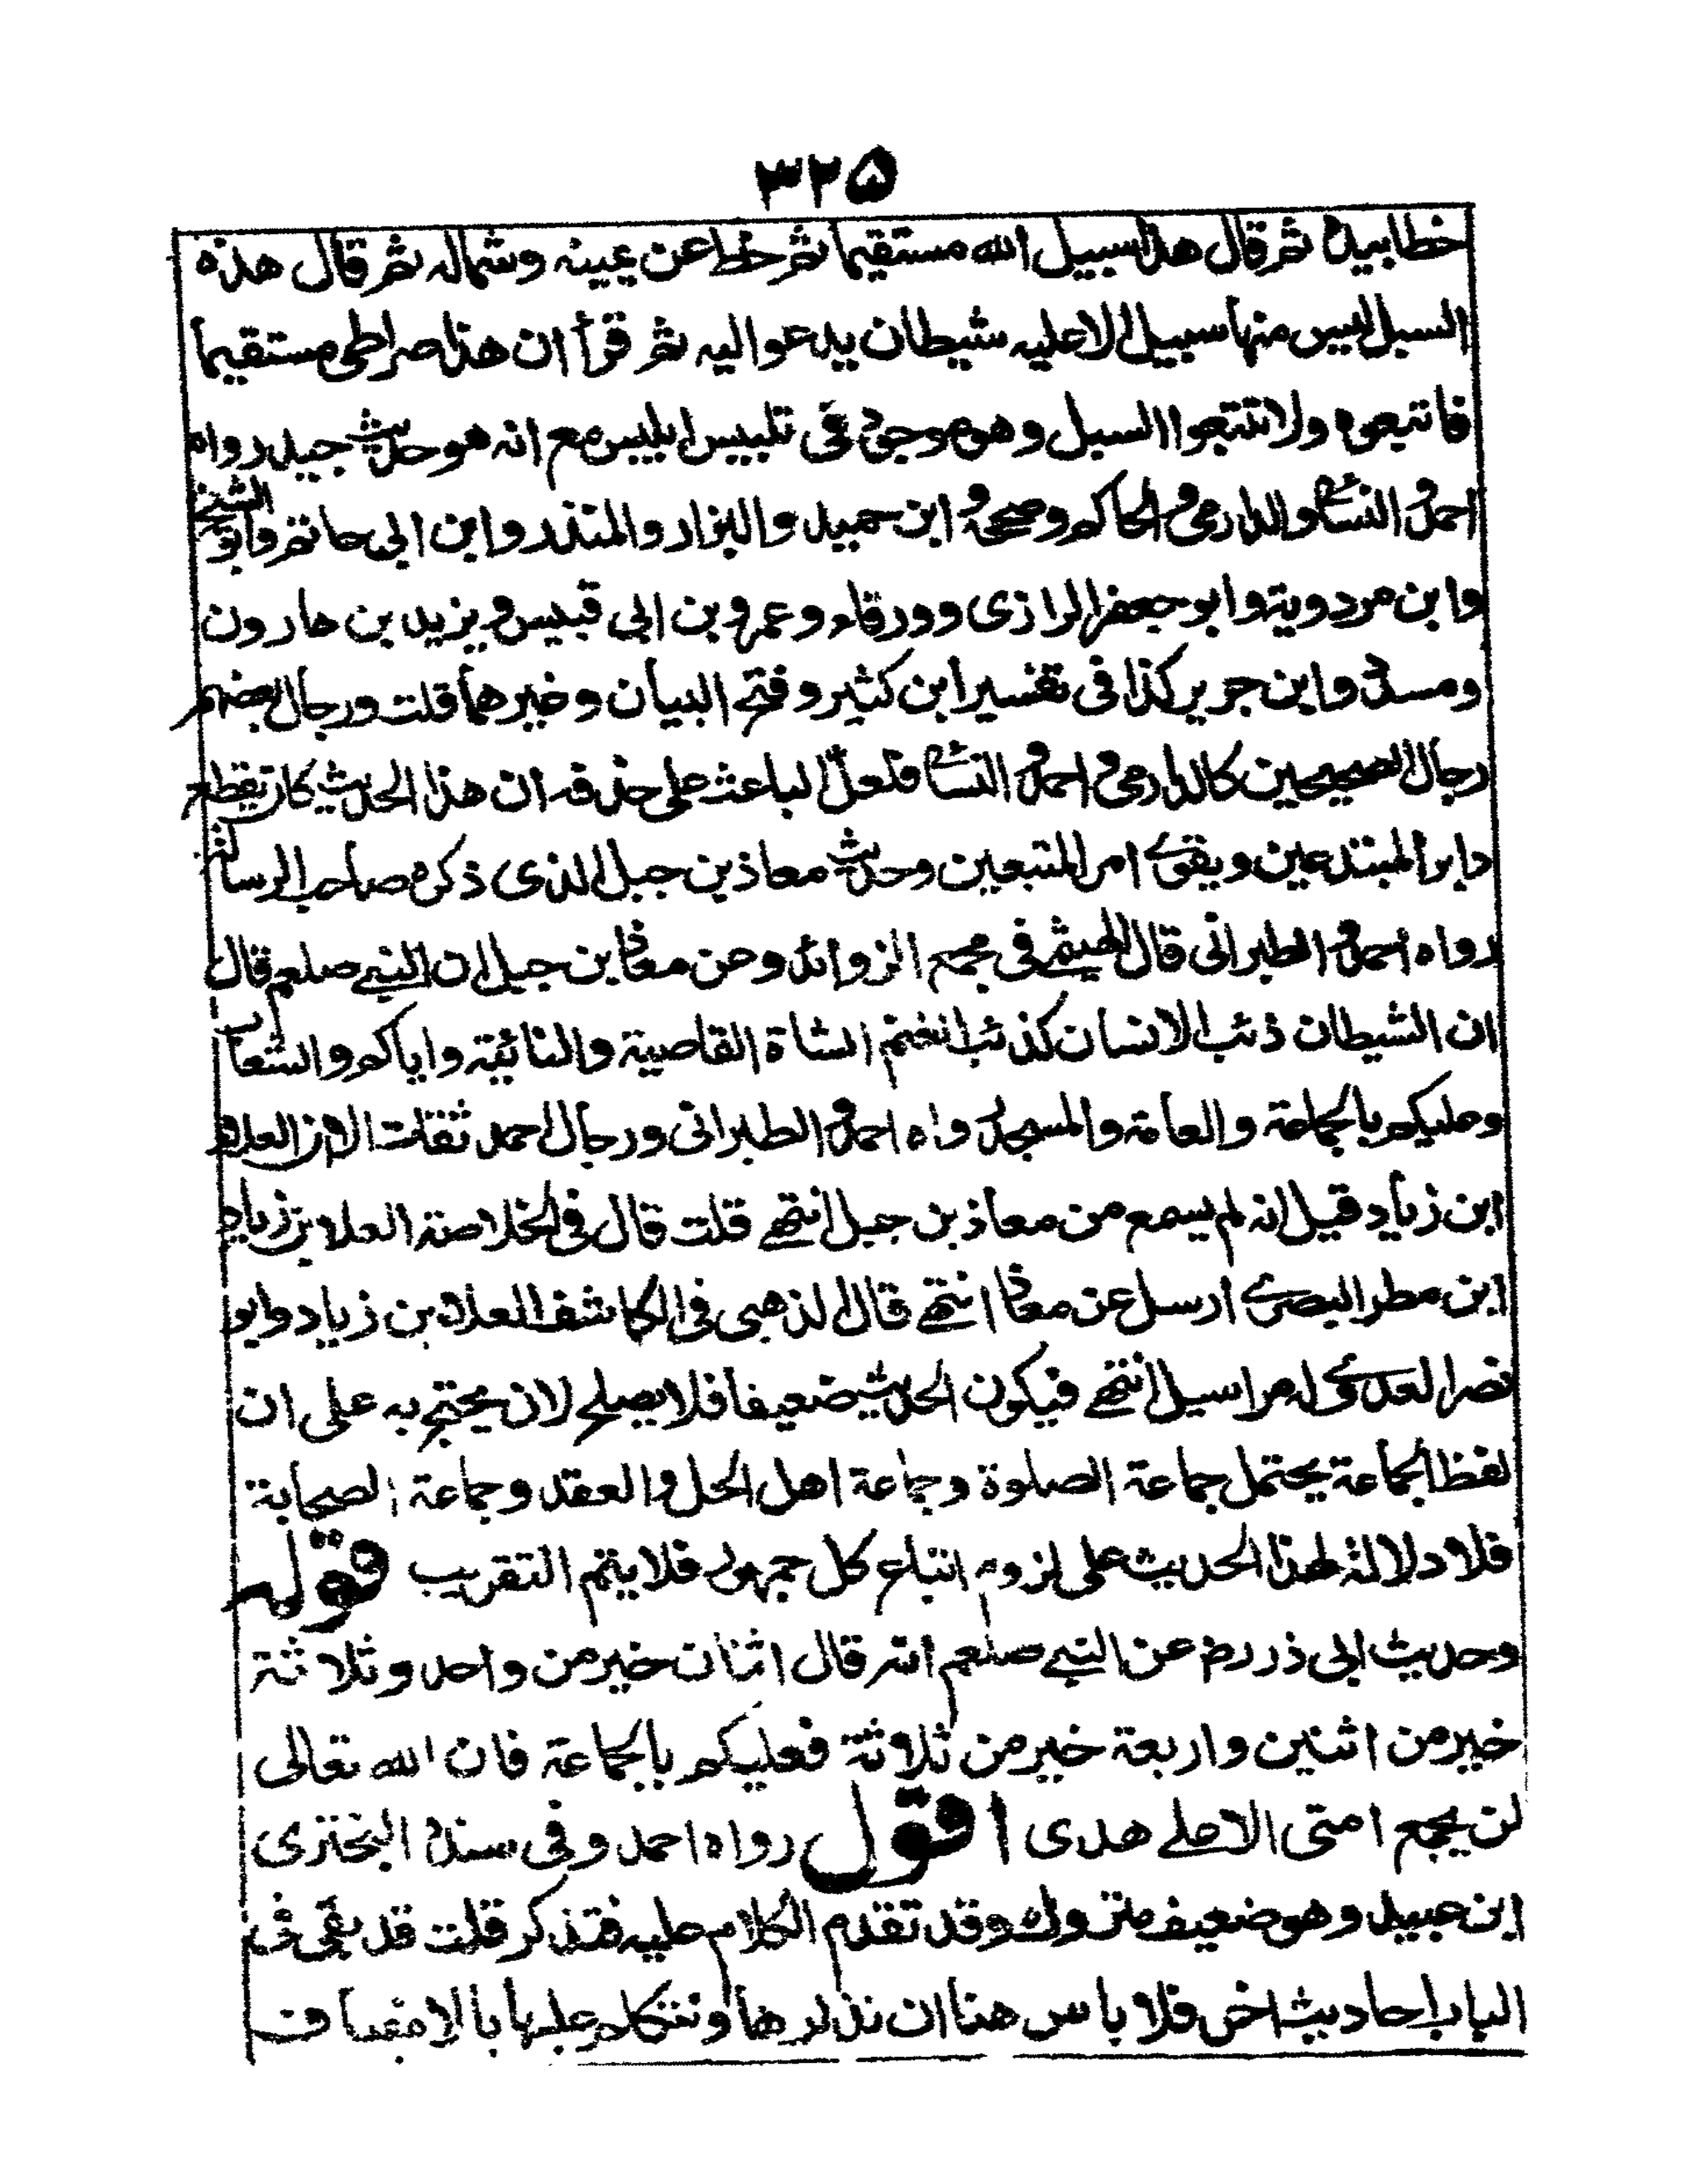 ٣٢٥
خطا بيده ثم قال هذا سبيل الله مستقيما ثم خط عن يمينه وشماله ثم قال هذه
السبل ليس منها سبيل الا عليه شيطان يدعو اليه ثم قرأ ان هذا صراطي مستقيما
فاتبعوه ولا تتبعوا السبل وهو موجود في تلبيس ابليس مع انه هو حديث جيد رواه
احمد والنسائي والدارمي والحاكم وصححه وابن حميد والبزار والمنذر وابن ابي حاتم وابو الشيخ
وابن مردوية وابو جعفر الرازي وورقاء وعمرو بن ابي قبيس ويزيد بن هارون
ومسدد وابن جرير كذا في تفسير ابن كثير وفتح البيان وغيرهما قلت ورجال بعضهم
رجال الصحيحين كالدارمي واحمد والنسائي فلعل الباعث على حذفه ان هذا الحديث كان يقطع
دابر المبتدعين ويقوي امر المتبعين وحديث معاذ بن جبل الذي ذكره صاحب الرسالة
رواه احمد والطبراني قال الهيثمي في مجمع الزوائد وعن معاذ بن جبل ان النبي صلعم قال
ان الشيطان ذئب الانسان كذئب الغنم الشاة القاصية والنائية واياكم والشعاب
وعليكم بالجماعة والعامة والمسجد رواه احمد والطبراني ورجال احمد ثقات الا ان العلاء
ابن زياد قيل انه لم يسمع من معاذ بن جبل انتهى قلت قال في الخلاصة العلا بن زياد
ابن مطر البصري ارسل عن معاذ انتهى قال الذهبي في الكاشف العلاء بن زياد وابو
نصر العدوي له مراسيل انتهى فيكون الحديث ضعيفا فلا يصلح لان يحتج به على ان
لفظ الجماعة يحتمل جماعة الصلوة وجماعة اهل الحل والعقد وجماعة الصحابة
فلا دلالة لهذا الحديث على لزوم اتباع كل جمهور فلا يتم التقريب قوله
وحديث ابي ذر رض عن النبي صلعم انه قال اثنان خير من واحد وثلاثة
خير من اثنين واربعة خير من ثلاثة فعليكم بالجماعة فان الله تعالى
لن يجمع امتي الا على هدى اقول رواه احمد وفي سنده البختري
ابن عبيد وهو ضعيف متروك وقد تقدم الكلام عليه فتذكر قلت قد بقي في
الباب احاديث اخر فلا باس هنا ان نذكرها ونتكلم عليها بالانصاف